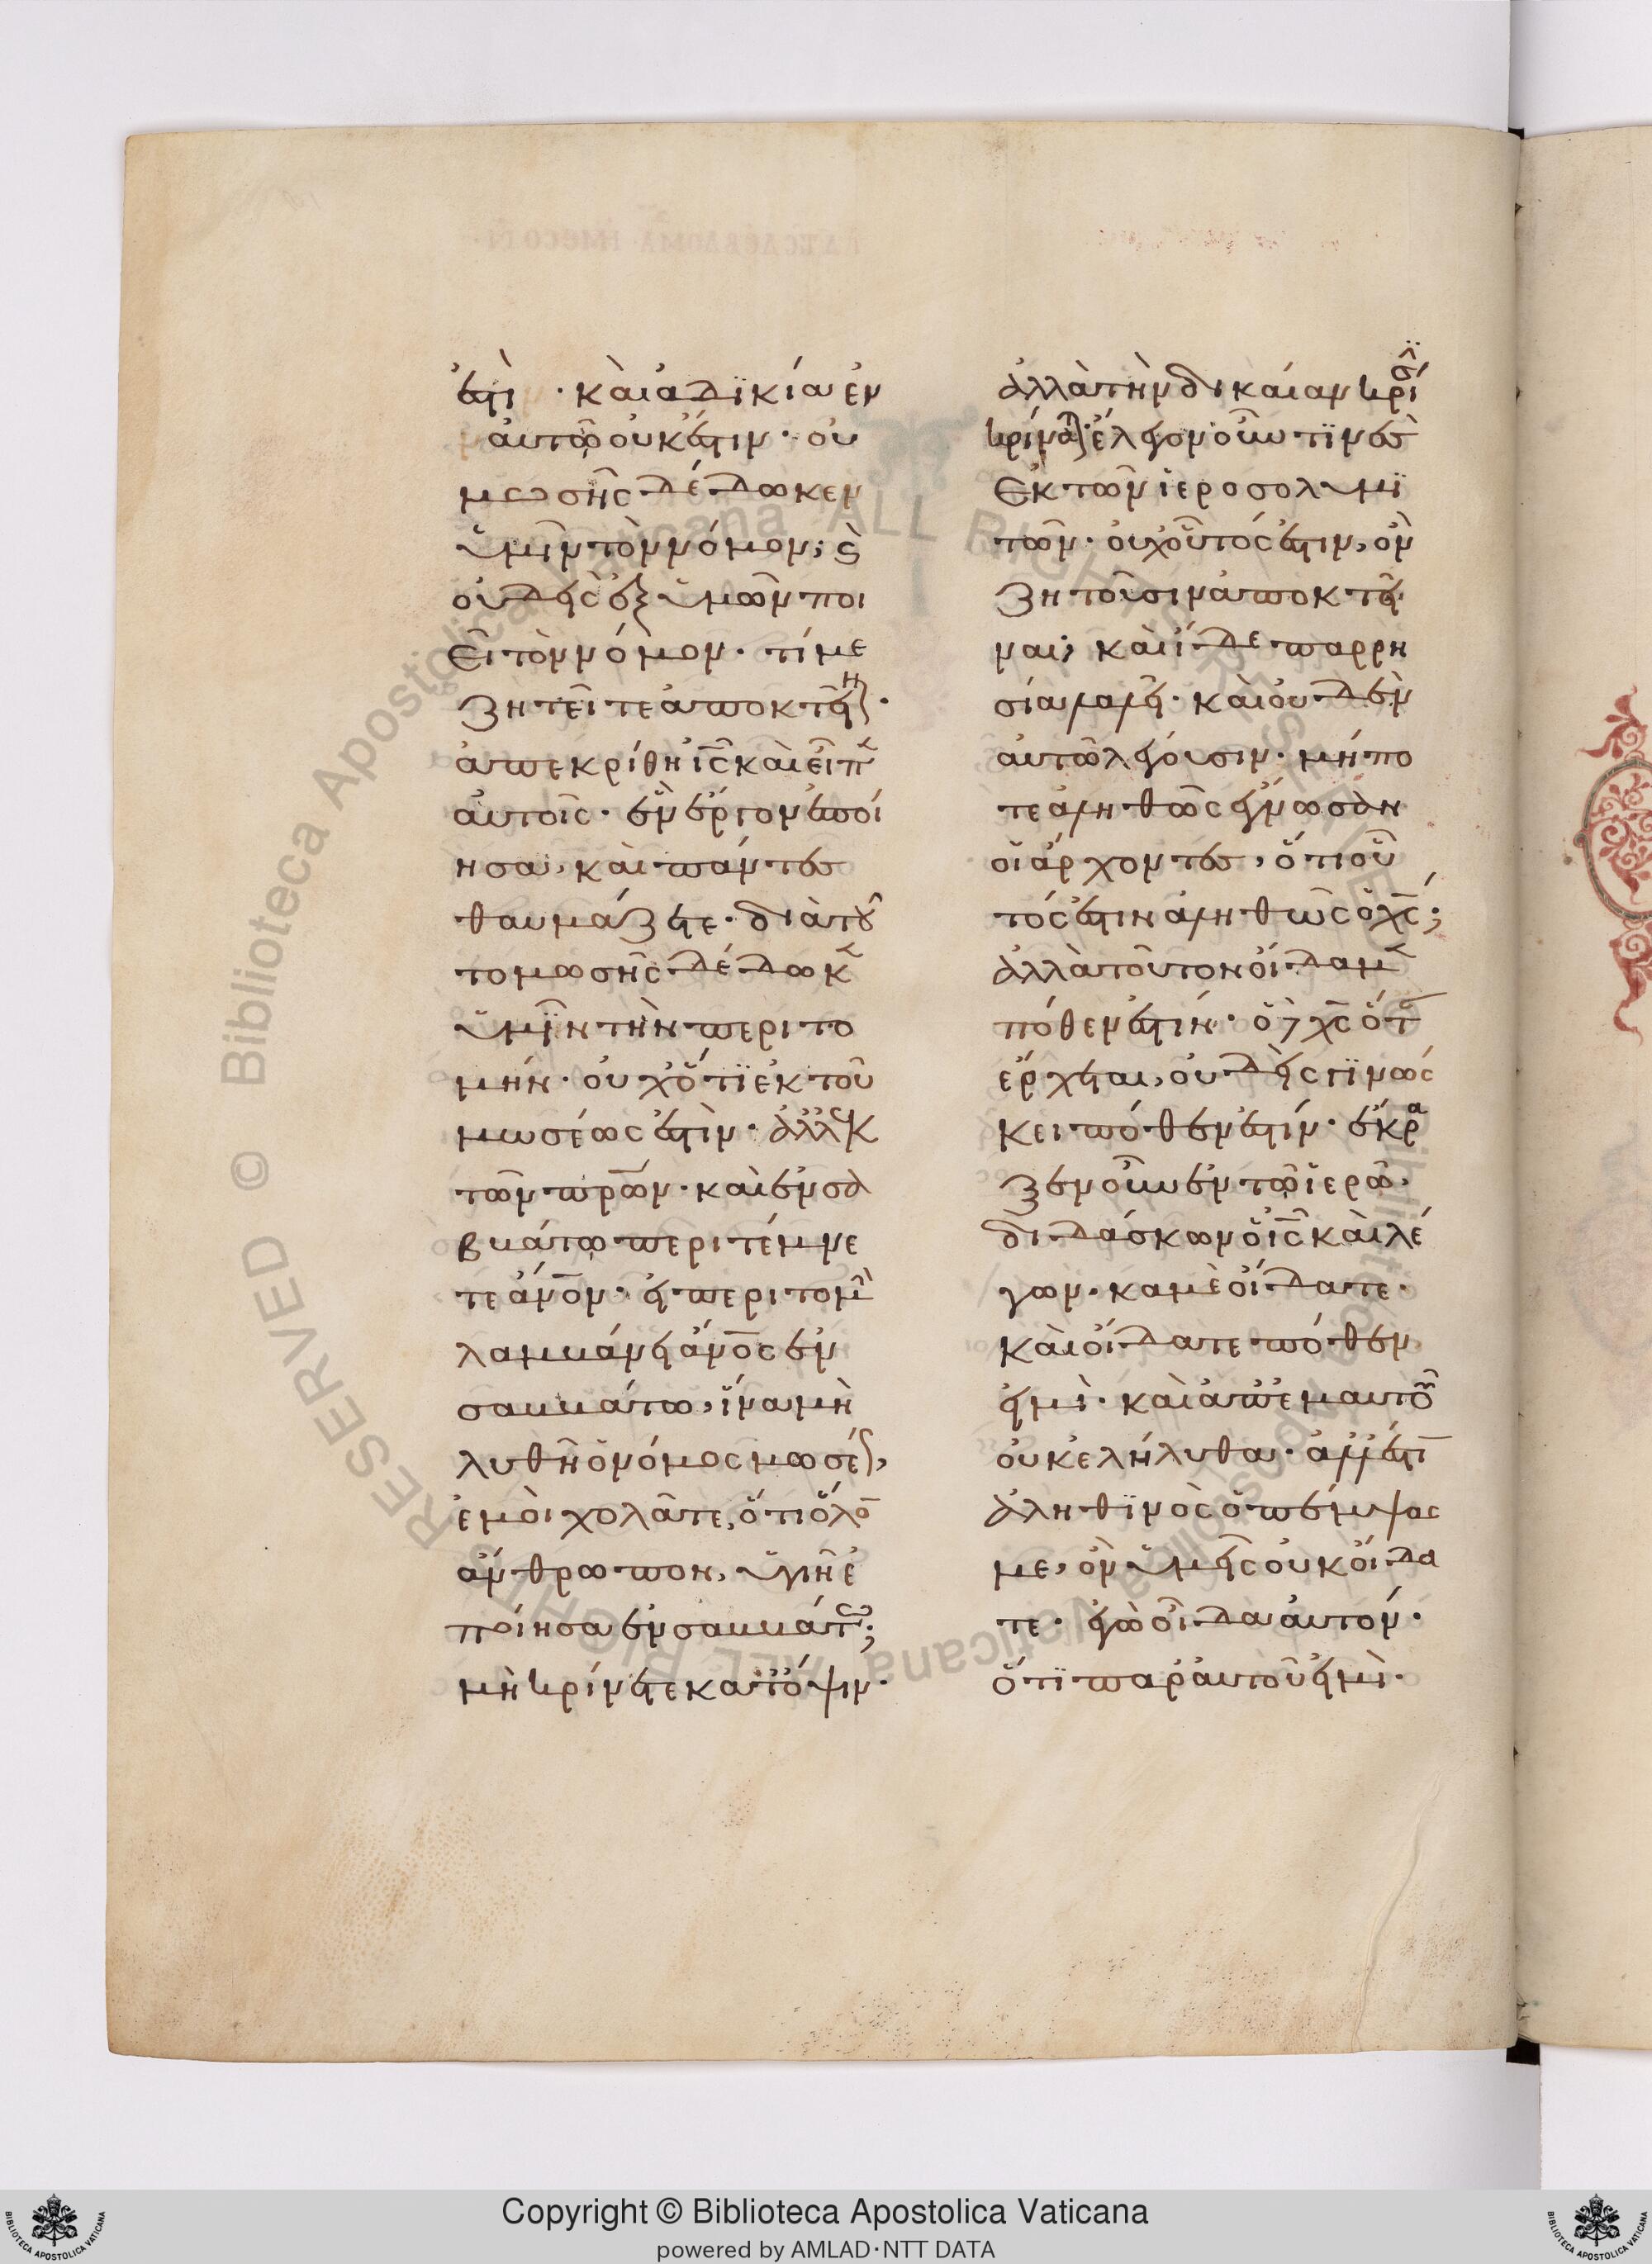 ἐστὶ · καὶ ἀδϊκία ἐν
αὐτῶ οὐκ ἔστιν · οὐ
μωσῆς δέδωκεν
ὑμῖν τὸν νόμον; ϗ
οὐδεὶς ἐξ ὑμῶν ποι
εῖ τὸν νόμον · τί με
ζητεῖτε ἀποκτεῖν ·
ἀπεκρίθη ἰς καὶ εἶπ
αὐτοῖς · ἓν ἔργον ἐποί
ησα, καὶ πάντες
θαυμάζετε · διὰ τοῦ
το μωσῆς δέδωκ
ὑμῖν τὴν περιτο
μήν · οὐχ ὅτϊ ἐκ τοῦ
μωσέως ἐστὶν · ἀλλ ἐκ
τῶν πρων · καὶ ἐν σα
βάτω περιτέμνε
τε ἄνον · εἰ περιτομὴ
λαμβάνει ἄνος ἐν
σαββάτω, ἵνα μὴ
λυθῆ ὁ νόμος μωσέ,
ἐμοὶ χολᾶτε, ὅτι ὅλο
ἄνθρωπον, ὑγιῆ ἐ
ποίησα ἐν σαββάτω;
μὴ κρίνετε κατ ὄψιν ·
ἀλλὰ τὴν δικαίαν κρίσι
κρίνατε · ἔλεγον οὖν τϊνες
ἐκ τῶν ἱεροσολυμϊ
τῶν · οὐχ οὗτός ἐστιν, ὃν
ζητοῦσιν ἀποκτεῖ
ναι; καὶ ἴδε παρρη
σία λαλεῖ · καὶ οὐδὲν
αὐτῶ λέγουσιν · μήπο
τε ἀληθῶς ἔγνωσαν
οἱ ἄρχοντες, ὅτι οὗ
τός ἐστιν ἀληθῶς ὁ χς;
ἀλλὰ τοῦτον οἴδαμ
πόθεν ἐστίν · ὁ δὲ χς ὅτ
ἔρχεται, οὐδεὶς γϊνώσ
κει πόθεν ἐστίν · ἔκρα
ζεν οὖν ἐν τῶ ἱερῶ ·
διδάσκων ὁ ἰς καὶ λέ
γων · καμὲ οἴδατε ·
καὶ οἴδατε πόθεν
εἰμὶ · καὶ ἀπ ἐμαυτοῦ
οὐκ ἐλήλυθα · ἀλλ ἔστι
ἀληθϊνὸς ὁ πέμψας
με, ὃν ὑμεῖς οὐκ οἴδα
τε · ἐγὼ οἶδα αὐτόν ·
ὅτϊ παρ αὐτοῦ εἰμὶ ·
Copyright © Biblioteca Apostolica Vaticana
powered by AMLAD·NTT DATA